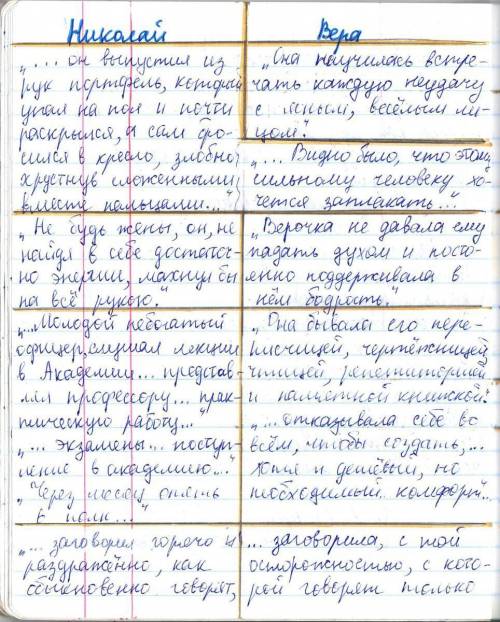 Николай
Вера
„... он выпустил из
рук портфель, который
упал на пол и почти
раскрылся, а сам бро-
сился в кресло, злобно
хрустнув сложенными
вместе пальцами..."
„Она научилась встре-
чать каждую неудачу
с ясным, весёлым ли-
цом".
„... Видно было, что этому
сильному человеку хо-
чется заплакать..."
„Не будь жены, он, не
найдя в себе достаточ-
но энергии, махнул бы
на всё рукою."
„Верочка не давала ему
падать духом и посто-
янно поддерживала в
нём бодрость."
„...Молодой небогатый
офицер, слушал лекции
в Академии... представ-
лял профессору... прак-
тическую работу..."
„... экзамены... поступ-
ление в академию..."
„Через месяц опять
в полк..."
„Она бывала его пере-
писчицей, чертёжницей,
чтицей, репетиторшей
и памятной книжкой."
„... отказывала себе во
всём, чтобы создать,...
хотя и дешёвый, но
необходимый комфорт..."
„... заговорил горячо и
раздражённо, как
обыкновенно говорят,
... заговорила, с той
осторожностью, с кото-
рой говорят только